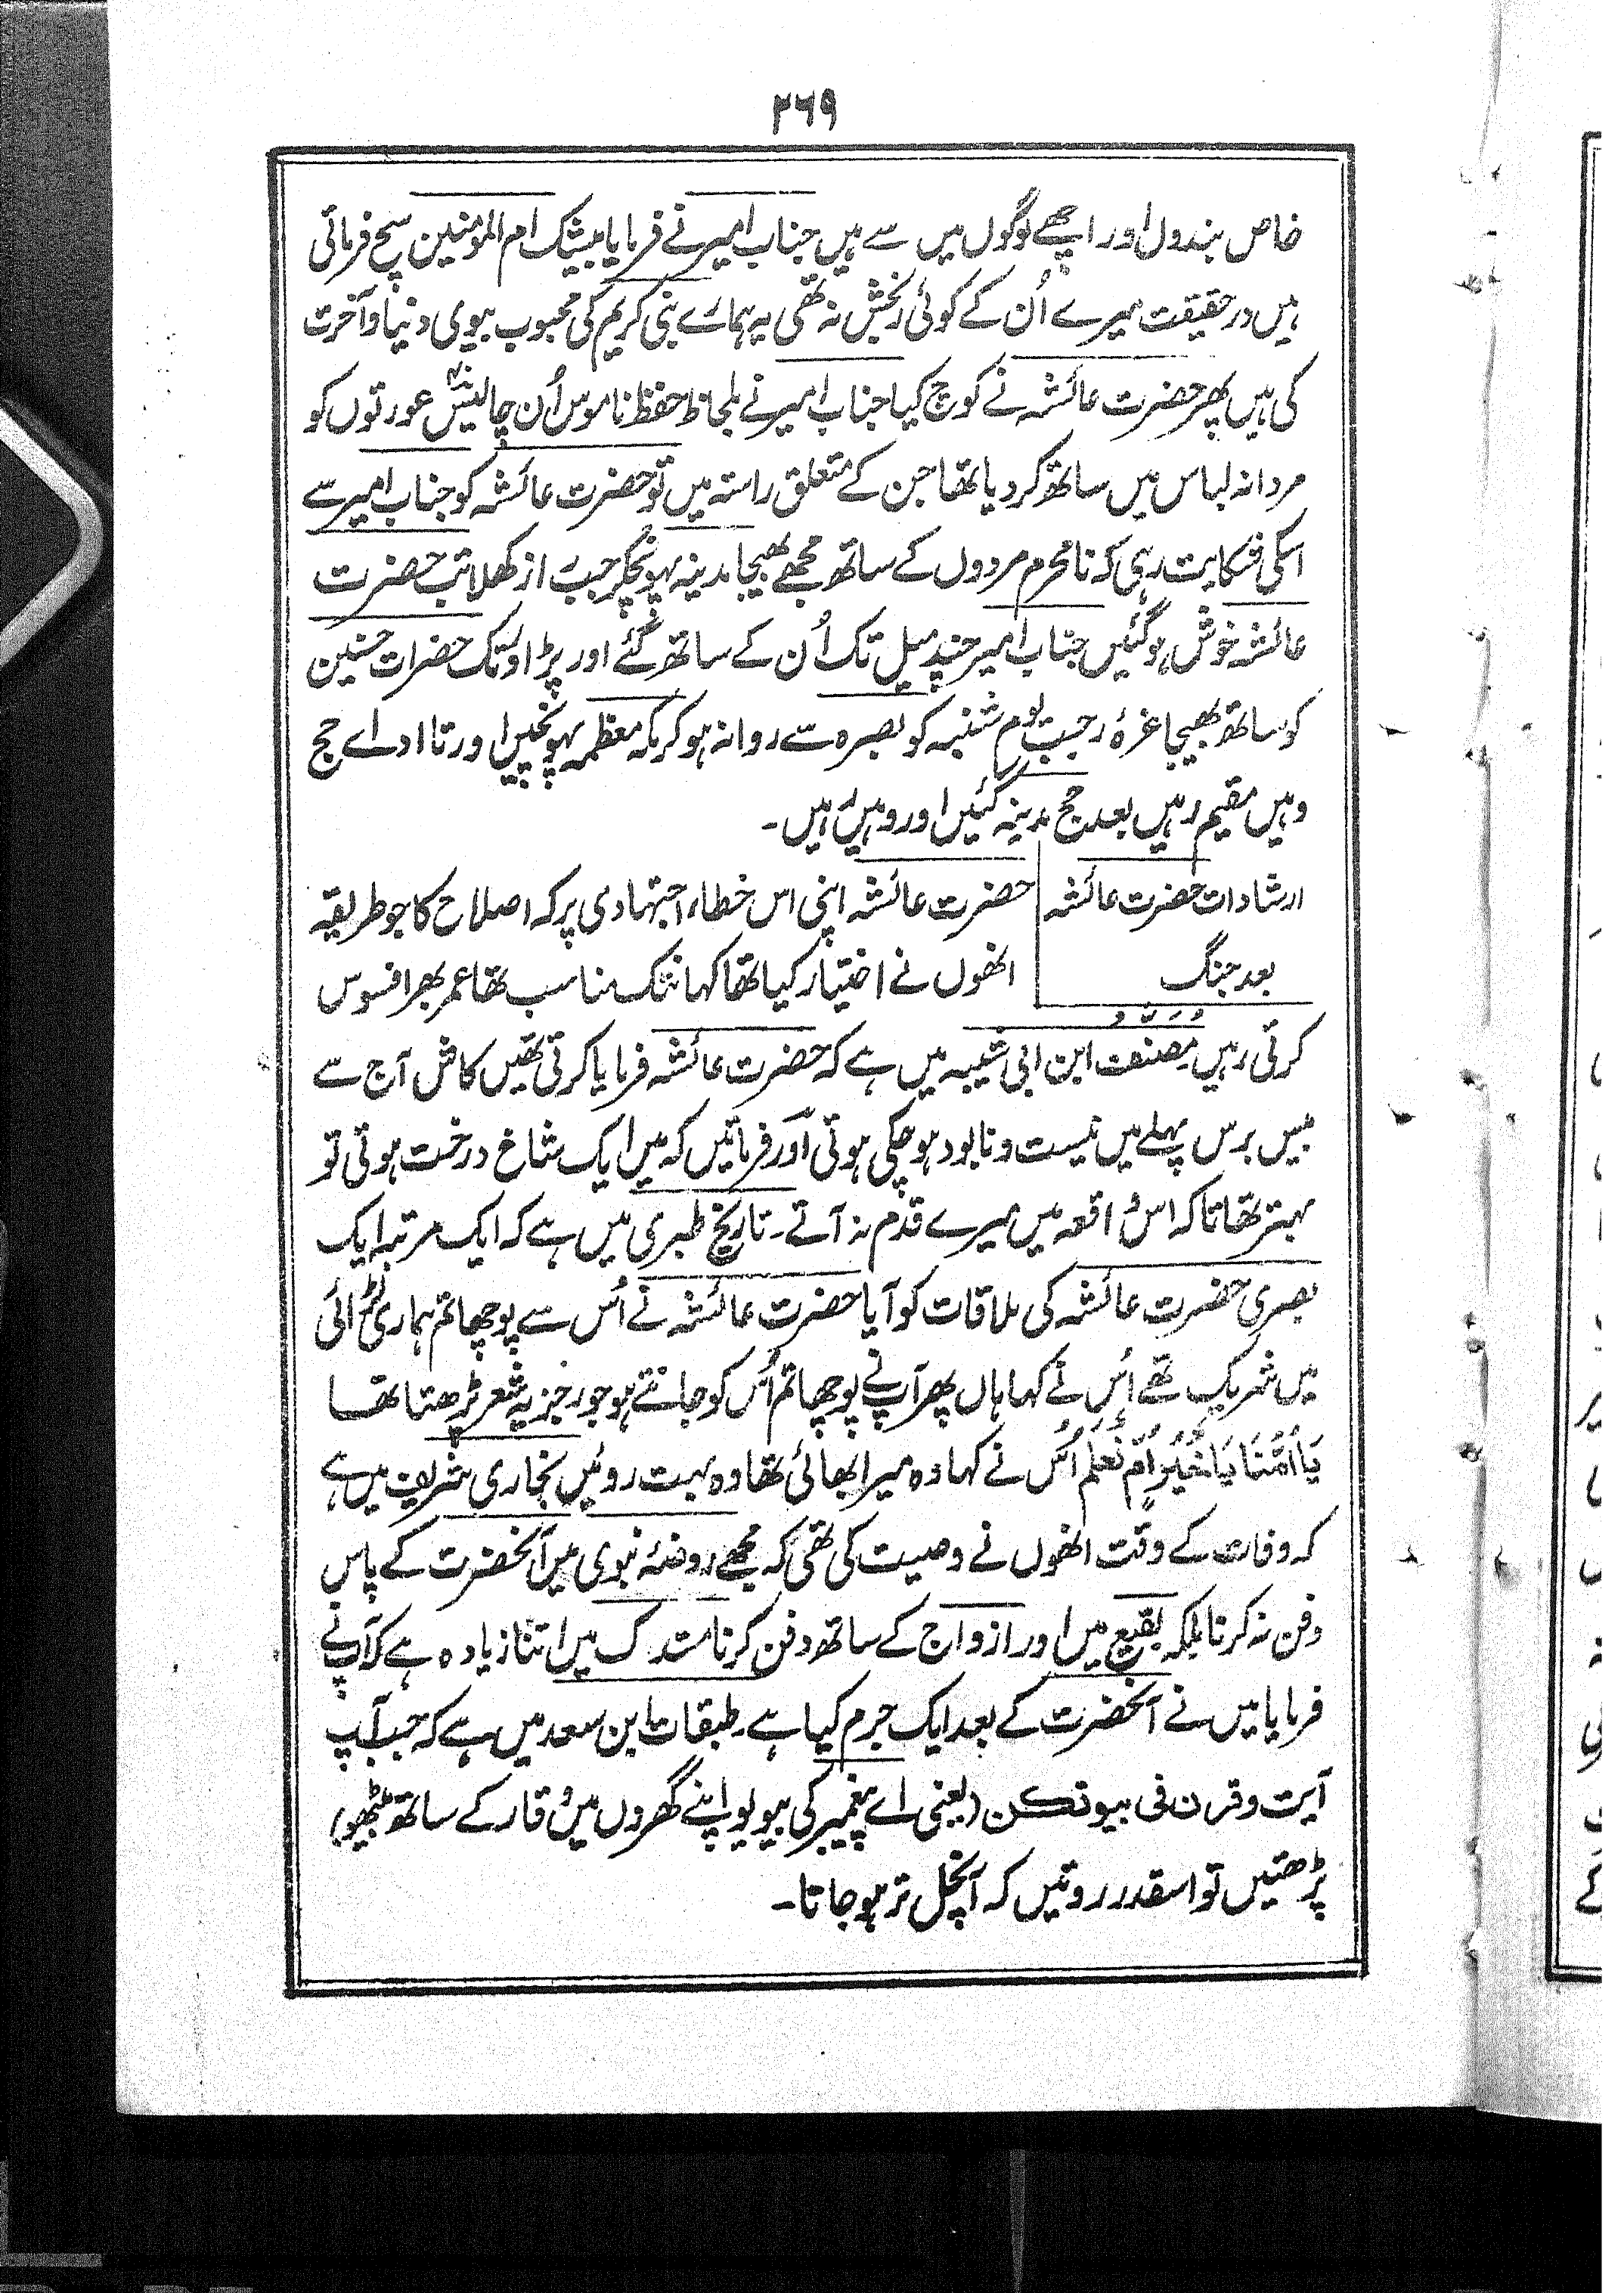 ۲۶۹
خاص بندوں اور اچھے لوگوں میں سے ہیں جناب امیر نے فرمایا بیشک ام المؤمنین سچ فرماتی
ہیں درحقیقت میرے اُن کے کوئی رنجش نہ تھی یہ ہمارے نبی کریم کی محبوب بیوی دنیا و آخرت
کی ہیں پھر حضرت عائشہ نے کوچ کیا جناب امیر نے بلحاظ حفظ ناموس اُن چالیس عورتوں کو
مردانہ لباس میں ساتھ کر دیا تھا جن کے متعلق راستہ میں تو حضرت عائشہ کو جناب امیر سے
اسکی شکایت رہی کہ نامحرم مردوں کے ساتھ مجھے بھیجا مدینہ پہونچکر جب راز کھلا تب حضرت
عائشہ خوش ہوگئیں جناب امیر چند میل تک اُن کے ساتھ گئے اور پڑاؤ تک حضرات حسنین
کو ساتھ بھیجا غرۂ رجب یوم شنبہ کو بصرہ سے روانہ ہو کر مکہ معظمہ پہونچیں اور تا ادائے حج
وہیں مقیم رہیں بعد حج مدینہ گئیں اور وہیں رہیں۔
ارشادات حضرت عائشہ
بعد جنگ
حضرت عائشہ اپنی اس خطاء اجتہادی پر کہ اصلاح کا جو طریقہ
انھوں نے اختیار کیا تھا کہانتک مناسب تھا عمر بھر افسوس
کرتی رہیں مصنف ابن ابی شیبہ میں ہے کہ حضرت عائشہ فرمایا کرتی تھیں کاش آج سے
بیس برس پہلے میں نیست و نابود ہو چکی ہوتی اور فرماتیں کہ میں ایک شاخ درخت ہوتی تو
بہتر تھا تا کہ اس واقعہ میں میرے قدم نہ آتے۔ تاریخ طبری میں ہے کہ ایک مرتبہ ایک
بصری حضرت عائشہ کی ملاقات کو آیا حضرت عائشہ نے اُس سے پوچھا تم ہماری لڑائی
میں شریک تھے اُس نے کہا ہاں پھر آپ نے پوچھا تم اُس کو جانتے ہو جو رجز یہ شعر پڑھتا تھا
یَا اُمَّنَا یَا خَیْرَ اُمٍّ نَعْلَم اُس نے کہا وہ میرا بھائی تھا وہ بہت روئیں بخاری شریف میں ہے
کہ وفات کے وقت انھوں نے وصیت کی تھی کہ مجھے روضۂ نبوی میں آنحضرت کے پاس
دفن نہ کرنا بلکہ بقیع میں اور ازواج کے ساتھ دفن کرنا مستدرک میں اتنا زیادہ ہے کہ آپ نے
فرمایا میں نے آنحضرت کے بعد ایک جرم کیا ہے۔ طبقات ابن سعد میں ہے کہ جب آپ
آیت وقرن فی بیوتکن (یعنی اے پیغمبر کی بیویو اپنے گھروں میں وقار کے ساتھ بیٹھو)
پڑھتیں تو اسقدر روتیں کہ آنچل تر ہو جاتا۔